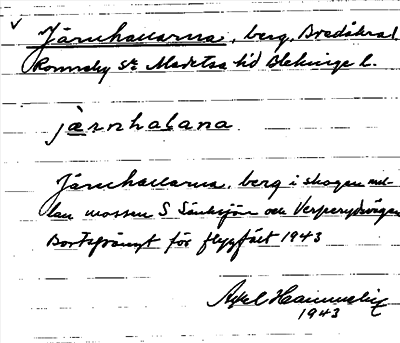 Järnhallarna, berg, Bredåkra l.
Ronneby sn Medelsta hd Blekinge l.
järnhalana
Järnhallarna, berg i skogen mel-
lan mossen S Sänksjön och Verperydsvägen
Bortsprängt för flygfält 1943
Axel
1943